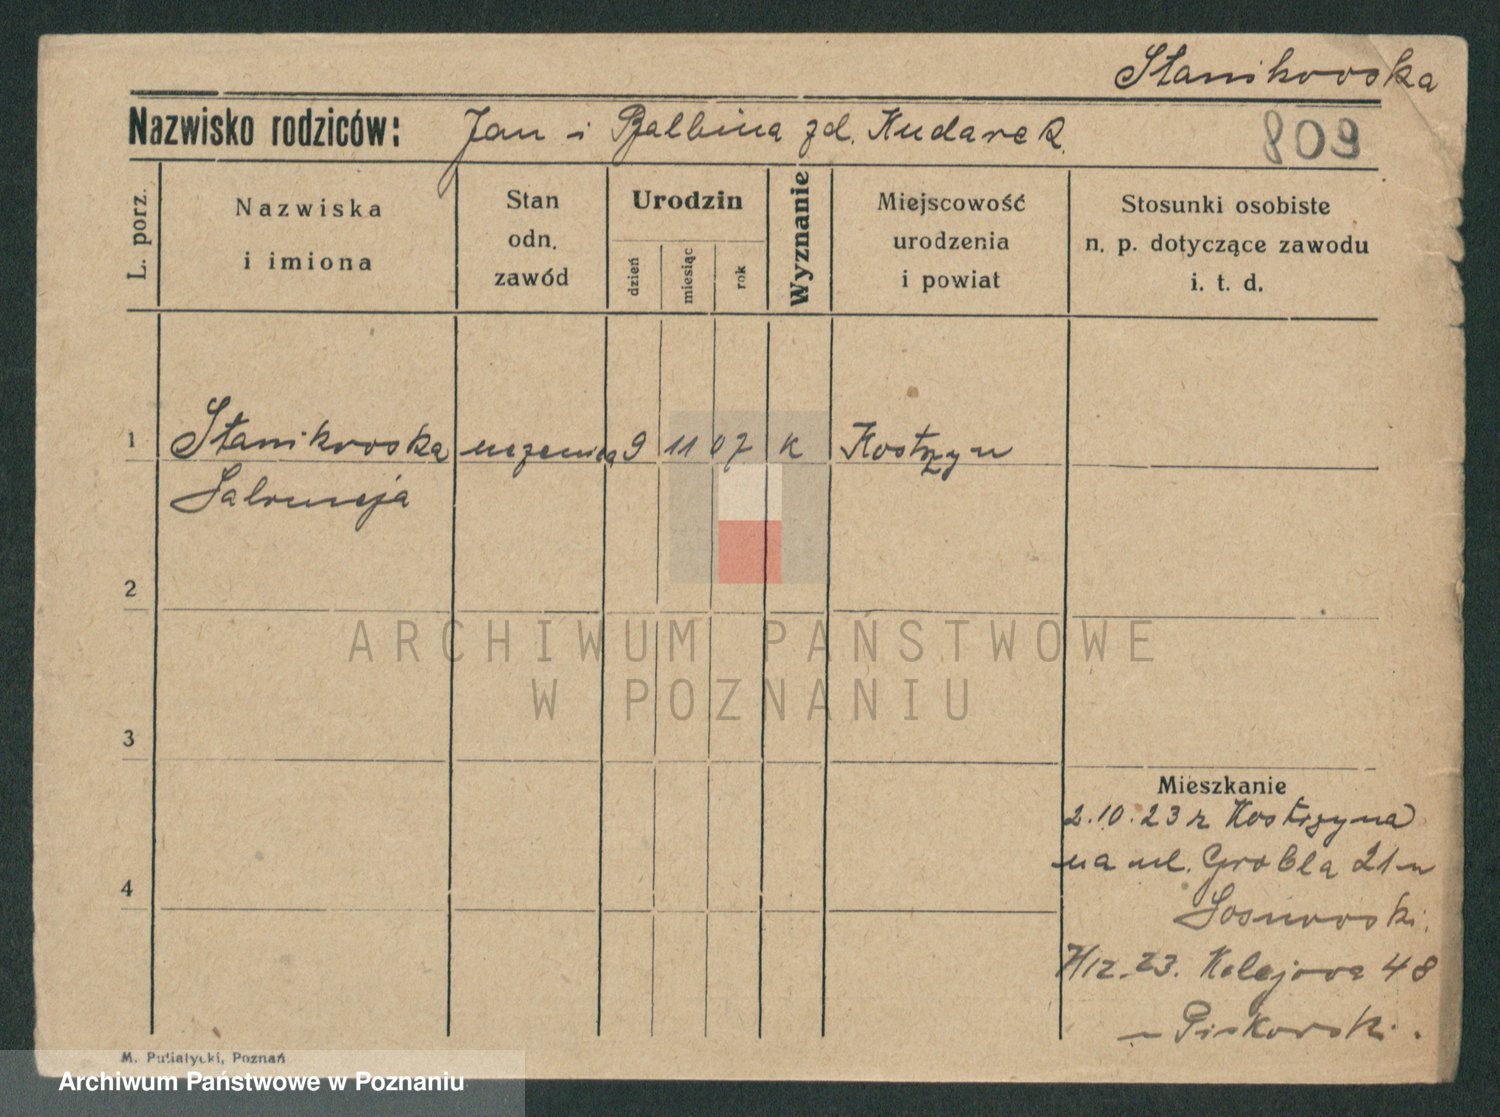 Stanikowska
Nazwisko rodziców: Jan i Balbina zd. Kudarek
809
L. porz.
Nazwiska
i imiona
Stan
odn.
zawód
Urodzin
dzień
miesiąc
rok
Wyznanie
Miejscowość
urodzenia
i powiat
Stosunki osobiste
n. p. dotyczące zawodu
i. t. d.
1 Stanikowska uczenica 9 11 07 k Kostrzyn
Salomeja
2
3
4
Mieszkanie
2.10.23 z Kostrzyna
na ul. Grobla 21 u
Sosnowski.
7/12.23. Kolejowa 48
u Piskorski.
M. Putiatycki, Poznań
ARCHIWUM PAŃSTWOWE
W POZNANIU
Archiwum Państwowe w Poznaniu